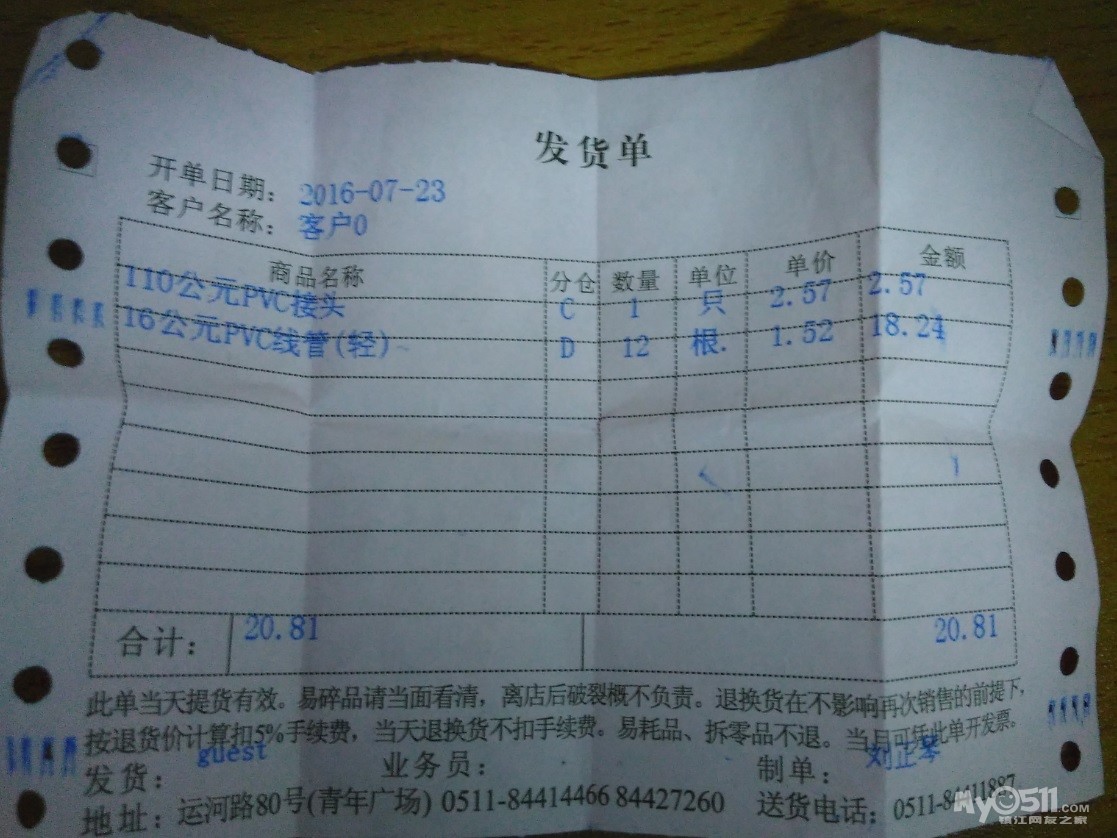 发货单
开单日期：2016-07-23
客户名称：客户0
商品名称 分仓 数量 单位 单价 金额
110公元PVC接头 C 1 只 2.57 2.57
16公元PVC线管(轻) D 12 根. 1.52 18.24
合计：20.81 20.81
此单当天提货有效。易碎品请当面看清，离店后破裂概不负责。退换货在不影响再次销售的前提下，
按退货价计算扣5%手续费，当天退换货不扣手续费。易耗品、拆零品不退。当月可凭此单开发票。
发货：guest 业务员： 制单：刘正琴
地址：运河路80号(青年广场) 0511-84414466 84427260 送货电话：0511-84411887
My0511.COM
镇江网友之家